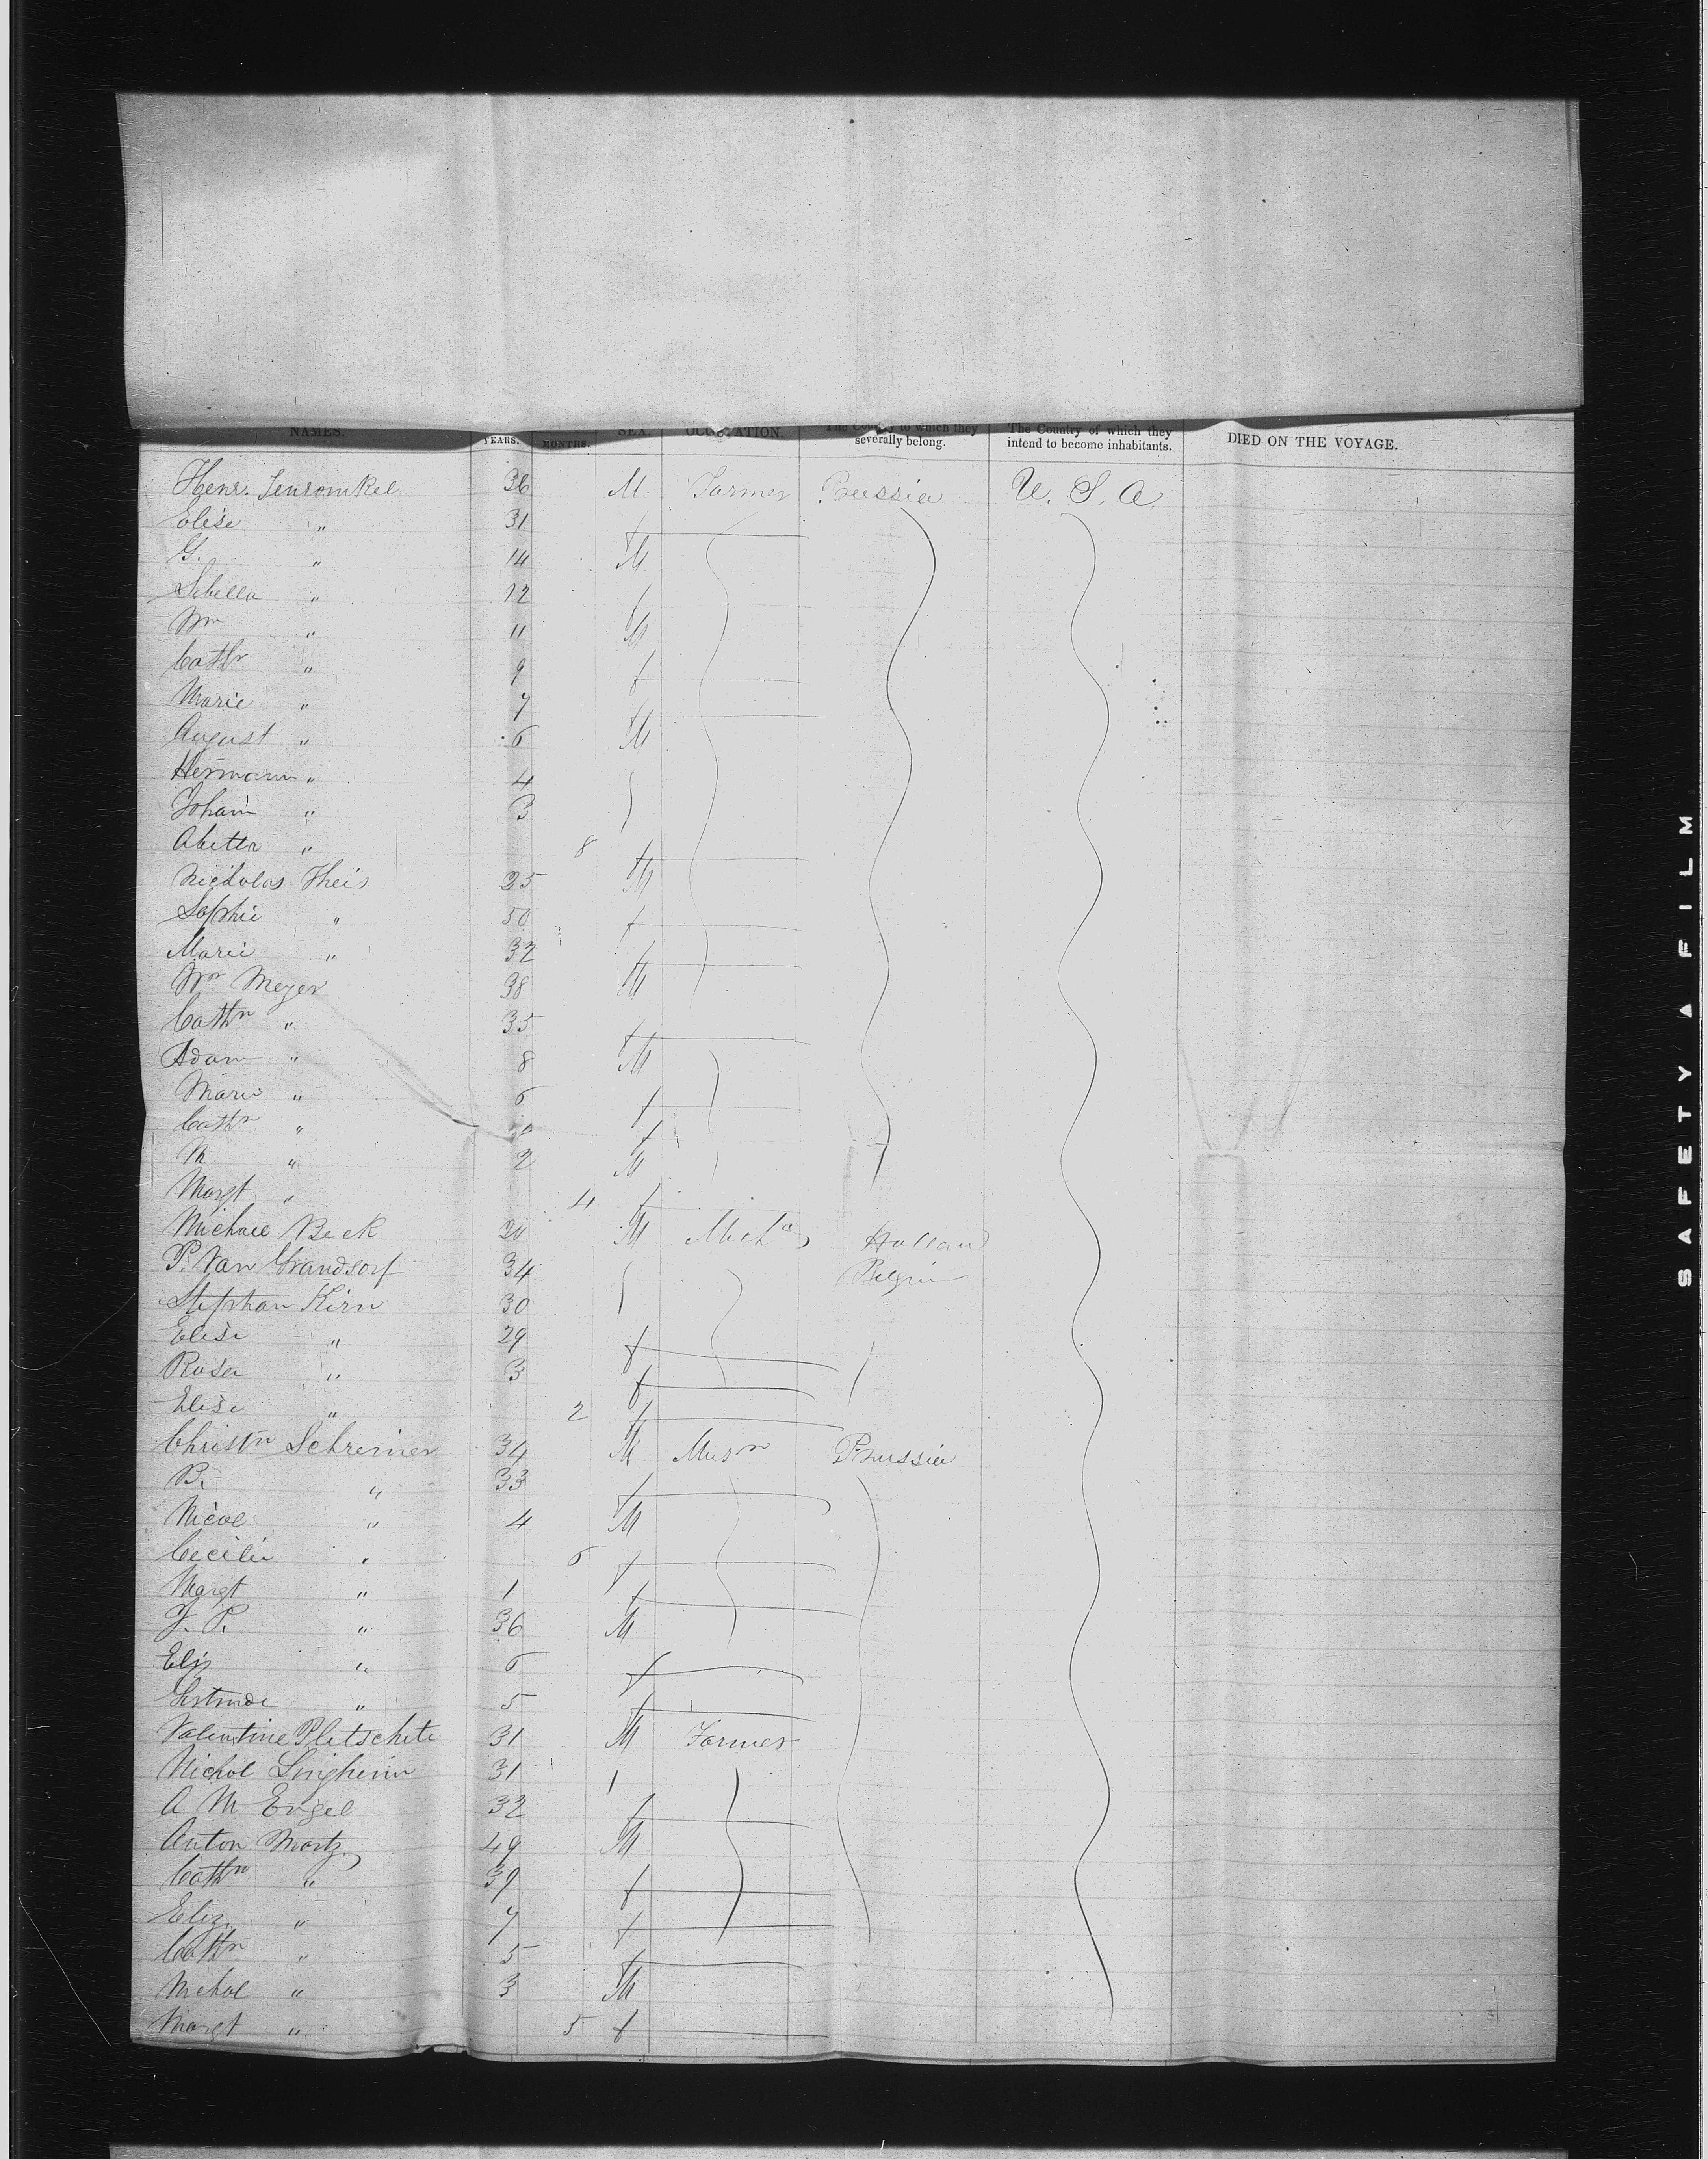 NAMES. YEARS. MONTHS. SEX. OCCUPATION. The Country to which they severally belong. The Country of which they intend to become inhabitants. DIED ON THE VOYAGE.
Henr. 36 M. Farmer Prussia U. S. A.
Elise " 31 f
G. " 14 M
Sibella " 12 f
Wm " 11 M
Cathn " 9 f
Marie " 7 f
August " 6 M
Hermann " 4
Johann " 3
" 8 f
Nicholas Theis 25 M
Sophie " 50 f
Marie " 32 f
Wm Meyer 38 M
Cathn " 35 f
Adam " 8 M
Marie " 6 f
Cathn " f
M " 2 M
Margt " 4 f
Michael Beck 20 M Mech Holland
P. Van Grandsorf 34 Belgium
Stephan Kirn 30
Elise " 29 f
Rosa " 3 f
Elise " 2 f
Christn Schreiner 34 M Musn Prussia
B. " 33 f
Nicol " 4 M
Cecilie " 6 f
Margt " 1 f
J. P. " 36 M
Eliz " 6 f
Gertrude " 5 f
Valentine Pletschete 31 M Farmer
Nichol 31
A M Engel 32 f
Anton Martz 49 M
Cathn " 39 f
Eliz. " 7 f
Cathn " 5 f
Nichol " 3 M
Margt " 5 f
SAFETY A FILM